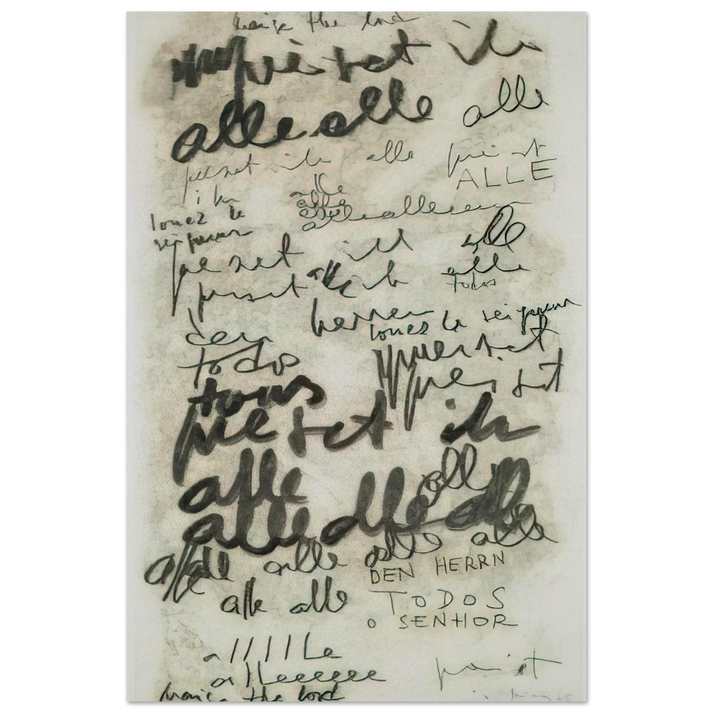 praise the lord
preiset ihn
alle alle alle
preiset ihn alle preiset
ihn alle ALLE
louez le alle
seigneur alle alleeeee
preiset ihn alle
preiset ihn alle
todos
herren louez le seigneur
den
todos preiset
tous preiset
preiset ihn
alle alle
alle alle alle
alle alle alle alle
DEN HERRN
alle alle TODOS
O SENHOR
allllle
alleeeeeee preiset
praise the lord